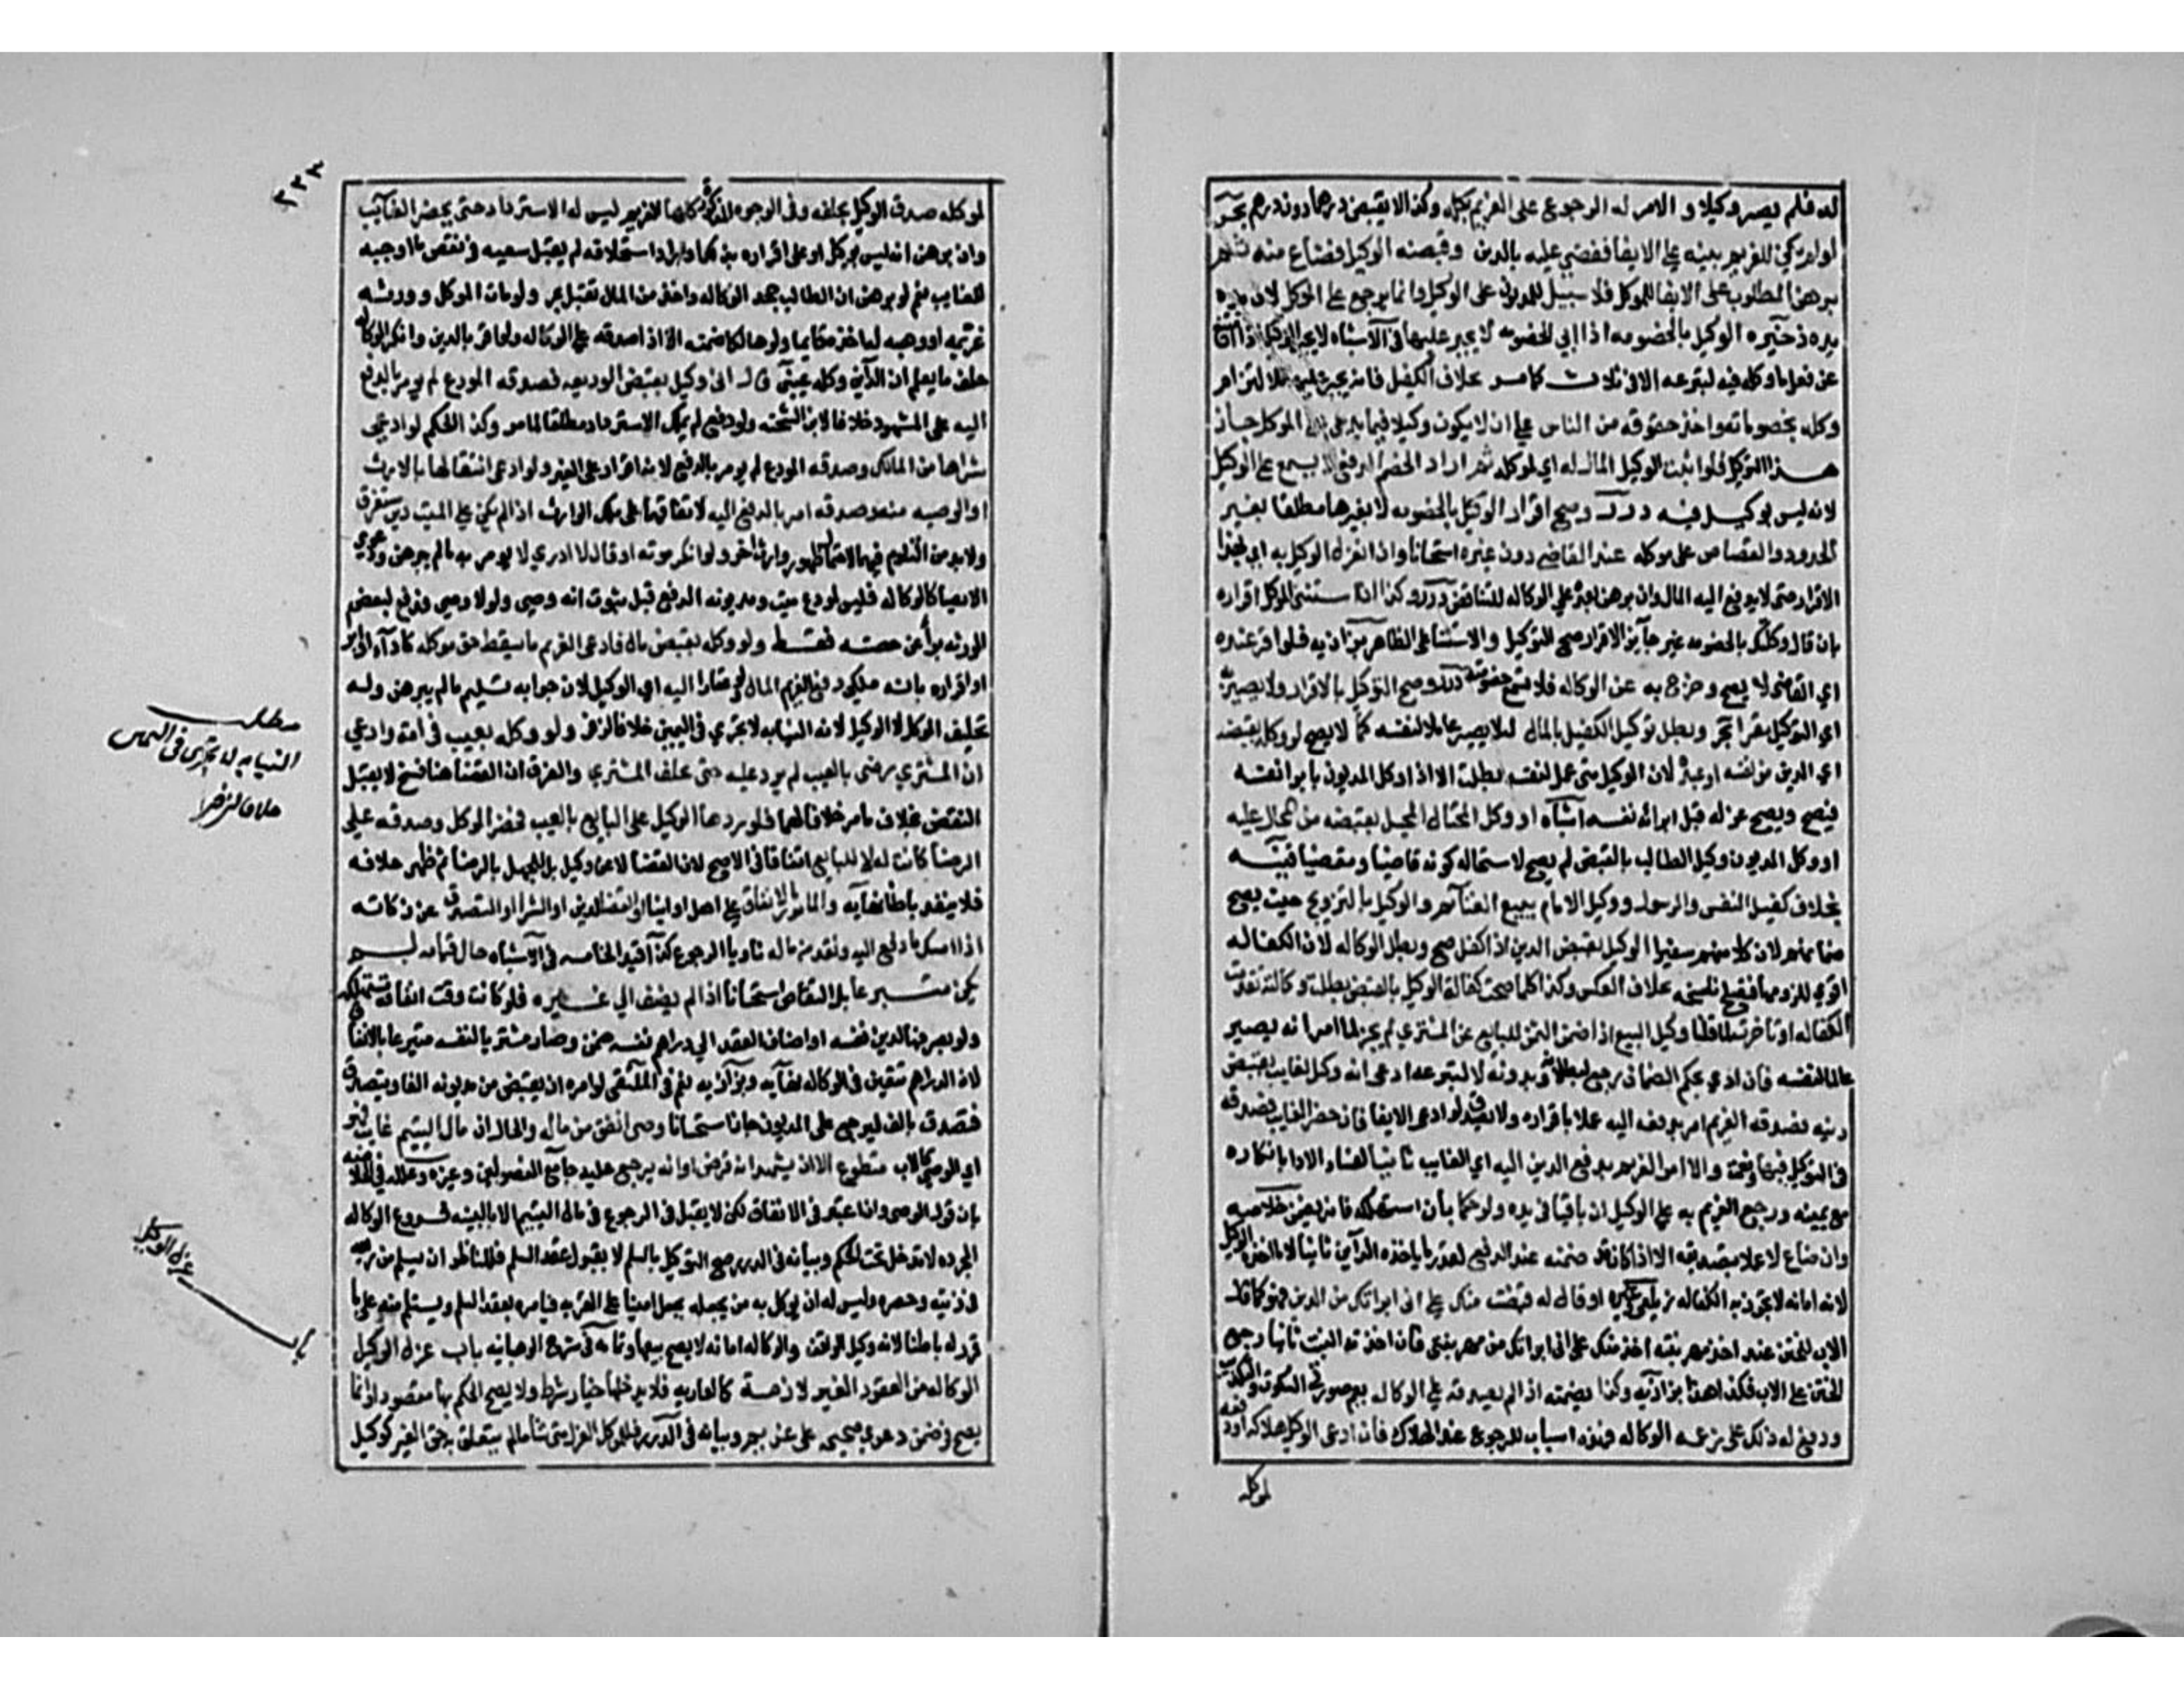 له فلم يصر وكيلا والامر له الرجوع على الغريم بكله وكذا لا يقبض درهما دون درهم بحر
لو لم يكن للغريم بينة على الايفا فقضي عليه بالدين وقبضه الوكيل فضاع منه ثم
برهن المطلوب على الايفا للموكل فلا سبيل للمديون على الوكيل وانما يرجع على الموكل لان يده
يده ذخيره الوكيل بالخصومه اذا ابى الخصومه لا يجبر عليها في الاشباه لا يجبر الوكيل اذا امتنع
عن فعل ما وكل فيه لتبرعه الا في ثلاث كما مر بخلاف الكفيل فانه يجبر عليها للالتزام
وكله بخصوماته واخذ حقوقه من الناس على ان لا يكون وكيلا فيما يدعى على الموكل جاز
هذا التوكيل فلو اثبت الوكيل المال له اي لموكله ثم اراد الخصم الدفع لا يسمع على الوكيل
لانه ليس بوكيل فيه درر وصح اقرار الوكيل بالخصومه لا بغيرها مطلقا بغير
الحدود والقصاص على موكله عند القاضي دون غيره استحسانا وان انعزل الوكيل به اي بهذا
الاقرار حتى لا يدفع اليه المال وان برهن بعده على الوكاله للتناقض درر وكذا اذا استثنى الموكل اقراره
بان قال وكلتك بالخصومه غير جايز الاقرار صح التوكيل والاستثنا على الظاهر بزازيه فلو اقر عنده
اي القاضي لا يصح وخرج به عن الوكاله فلا تسمع خصومته درر وصح التوكيل بالاقرار ولا يصير به
اي التوكيل مقرا بحر وبطل توكيل الكفيل بالمال لئلا يصير عاملا لنفسه كما لا يصح لو وكله بقبضه
اي الدين من نفسه او عبده لان الوكيل متى عمل لنفسه بطلت الا اذا وكل المديون بابرا نفسه
فيصح ويصح عزله قبل ابرائه نفسه اشباه او وكل المحتال المحيل بقبضه من المحال عليه
او وكل المديون وكيل الطالب بالقبض لم يصح لاستحاله كونه قاضيا ومقتضيا قنيه
بخلاف كفيل النفس والرسول ووكيل الامام ببيع الغنايم والوكيل بالتزويج حيث يصح
ضمانهم لان كلا منهم سفيرا الوكيل بقبض الدين اذا كفل صح وبطل الوكاله لان الكفاله
اقوى للزومها فتصلح ناسخه بخلاف العكس وكذا كلما صحت كفالة الوكيل بالقبض بطلت وكالته تقدمت
الكفاله او تاخرت لما قلنا وكيل البيع اذا ضمن الثمن للبايع عن المشتري لم يجز لما مر انه يصير
عاملا لنفسه فان ادى بحكم الضمان رجع لبطلانه وبدونه لا لتبرعه ادعى انه وكيل الغايب بقبض
دينه فصدقه الغريم امر بدفعه اليه عملا باقراره ولا يصدق لو ادعى الايفا فان حضر الغايب فصدقه
في التوكيل فبها ونعمت والا امر الغريم بدفع الدين اليه اي الغايب ثانيا لفساد الادا بانكاره
مع يمينه ورجع الغريم به على الوكيل ان باقيا في يده ولو حكما بان استهلكه فانه يضمن خلاصه
وان ضاع لا عملا بتصديقه الا اذا كان قد ضمنه عند الدفع لقدر ما ياخذه الداين ثانيا لا ما اخذه الوكيل
لانه امانه لا تجوز به الكفاله زيلعي وغيره او قال له قبضت منك على اني ابراتك من الدين فهو كما قال
الاب للختن عند اخذ مهر بنته اخذ منك على اني ابراتك من مهر بنتي فان اخذته البنت ثانيا رجع
الختن على الاب فكذا هذا بزازيه وكذا يضمنه اذا لم يصدقه على الوكاله يعم صورتي السكوت والتكذيب
ودفع له ذلك على زعمه الوكاله فهذه اسباب للرجوع عند الهلاك فان ادعى الوكيل هلاكه او دفعه
لموكله
٢٢٣
لموكله صدق الوكيل بحلفه وفي الوجوه المذكورة كلها الغريم ليس له الاسترداد حتى يحضر الغايب
وان برهن انه ليس بوكيل او على اقراره بذلك او اراد استحلافه لم يقبل لسعيه في نقض ما اوجبه
للغايب نعم لو برهن ان الطالب جحد الوكاله واخذ مني المال تقبل بحر ولو مات الموكل وورثه
غريمه او وهبه له اخذه قايما ولو هالكا ضمنه الا اذا صدقه على الوكاله ولو اقر بالدين وانكر الوكاله
حلف ما يعلم ان الداين وكله عيني قال اني وكيل بقبض الوديعه فصدقه المودع لم يومر بالدفع
اليه على المشهور خلافا لابن الشحنه ولو دفع لم يملك الاسترداد مطلقا لما مر وكذا الحكم لو ادعى
شراها من المالك وصدقه المودع لم يومر بالدفع لانه اقرار على الغير ولو ادعى انتقالها بالارث
او الوصيه منه وصدقه امر بالدفع اليه لاتفاقهما على ملك الوارث اذا لم يكن على الميت دين مستغرق
ولا بد من التلوم فيهما لاحتمال ظهور وارث اخر ولو انكر موته او قال لا ادري لا يومر به ما لم يبرهن ودعوى
الايصا كالوكاله فليس لمودع ميت ومديونه الدفع قبل ثبوت انه وصي ولو لا وصي فدفع لبعض
الورثه برأ عن حصته فقط ولو وكله بقبض مال فادعى الغريم ما يسقط حق موكله كادا او ابرا
او اقراره بانه ملكي دفع الغريم المال ولو عقارا اليه اي الوكيل لان جوابه تسليم ما لم يبرهن وله
تحليف الموكل لا الوكيل لانه النيابه لا تجري في اليمين خلافا لزفر ولو وكله بعيب في امة وادعى
ان المشتري رضي بالعيب لم يرد عليه حتى حلف المشتري والفرق ان القضا هنا فسخ لا يقبل
النقض بخلاف ما مر خلافا لهما فلو ردها الوكيل على البايع بالعيب فحضر الموكل وصدقه على
الرضا كانت له لا للبايع اتفاقا في الاصح لان القضا لا عن دليل بل للجهل بالرضا ثم ظهر خلافه
فلا ينفذ باطنا نهايه والمامور بالانفاق على اهل او بنا او القضا لدين او الشرا او التصدق عن زكاته
اذا امسك ما دفع اليه ونقد من ماله ناويا الرجوع كذا قيد الخامسه في الاشباه حال قيامه لم
يكن متبرعا بل القياس استحسانا اذا لم يضف الى غيره فلو كانت وقت انفاقه مستهلكه
ولو بصرفها لدين نفسه او اضاف العقد الى دراهم نفسه ضمن وصار مشتريا لنفسه متبرعا بالانفاق
لان الدراهم تتعين في الوكاله نهايه وبزازيه نعم في المنتقى لو امره ان يقبض من مديونه الفا ويتصدق
فتصدق بالف ليرجع على المديون جاز استحسانا وصي انفق من ماله والحال ان مال اليتيم غايب فهو
اي الوصي كالاب متطوع الا ان يشهد انه قرض او انه يرجع عليه جامع الفصولين وغيره وعلله في الخلاصه
بان قول الوصي وان اعتبر في الانفاق لكن لا يقبل في الرجوع في مال اليتيم الا بالبينه فروع الوكاله
المجرده لا تدخل تحت الحكم وبيانه في الدرر صح التوكيل بالسلم لا بقبول عقد السلم فللناظر ان يسلم من ريعه
في زيته وحصره وليس له ان يوكل به من يجعله بجعل امينا على القريه فيامره بعقد السلم ويستلم منه على ما
قرر له باطنا لانه وكيل الواقف والوكاله امانه لا يصح بيعها وتمامه في شرح الوهبانيه باب عزل الوكيل
الوكاله من العقود الغير لازمة كالعاريه فلا يدخلها خيار شرط ولا يصح الحكم بها مقصودا وانما
يصح في ضمن دعوى صحيحه على غريم بحر وبيانه في الدرر فللموكل العزل متى شا ما لم يتعلق به حق الغير كوكيل
مطلب
النيابه لا تجري في اليمين
خلافا لزفر
باب عزل الوكيل